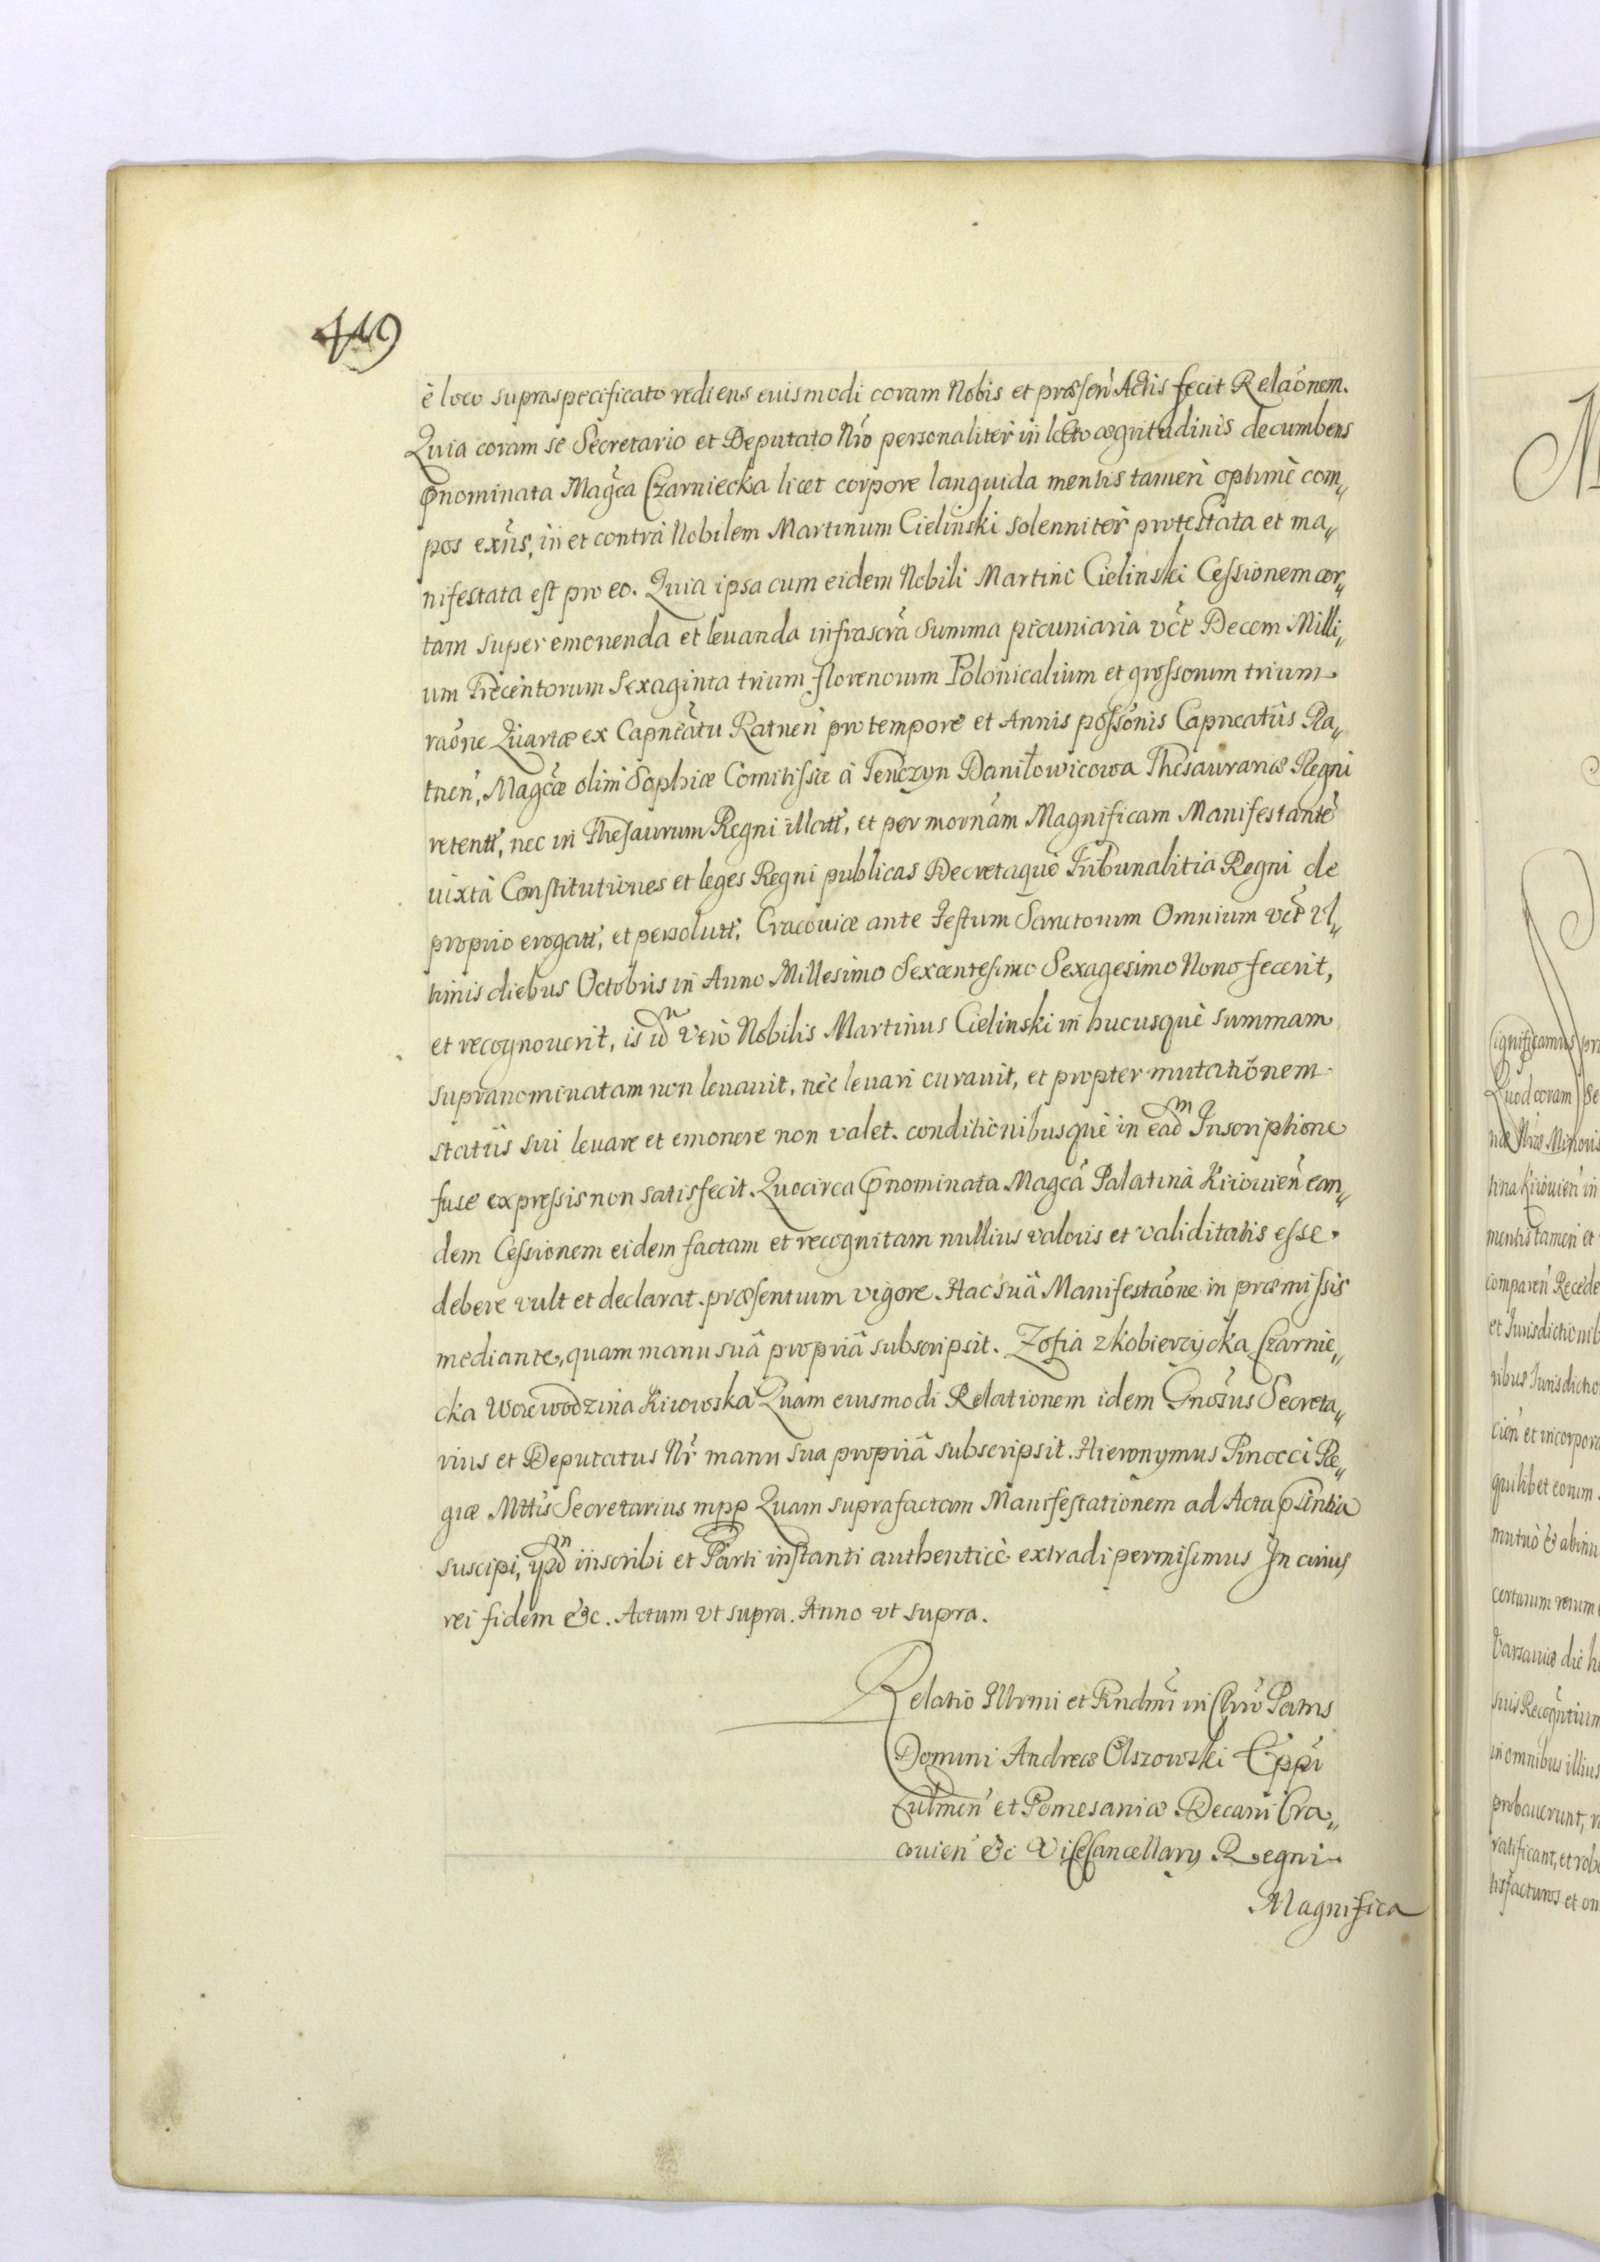 449
è loco supraspecificato rediens euismodi coram Nobis et præsen̄ Actis fecit Relaõnem.
Quia coram se Secretario et Deputato Nr̃o personalitèr in lecto ægritudinis decumbens
p̃nominata Mag̃ca Czarniecka licet corpore languida mentis tamen optimè com„
pos exñs, in et contrà Nobilem Martinum Cielinski solennitèr protestata et ma„
nifestata est pro eo. Quia ipsa cum eidem Nobili Martino Cielinski Cessionem cer„
tam super emonenda et leuanda infrascr̃a Summa pecuniaria vc̃t Decem Milli„
um Trecentorum Sexaginta trium florenorum Polonicalium et grossorum trium
raõne Quartæ ex Capnc̃atu Ratnen̄ pro tempore et Annis possõnis Capneatûs Ra„
tnen̄, Magc̃æ olim Sophiæ Comitissæ à Tenczyn Daniłowicowa Thesaurariæ Regni
retentt̃, nec in Thesaurum Regni illatt̃, et per mornãm Magnificam Manifestantẽ
iuxtà Constitutiones et leges Regni publicas Decretaquè Tribunalitia Regni de
proprio erogatt̃, et persolutt̃, Cracouiæ ante Festum Sanctorum Omnium vc̃t Vl„
timis diebus Octobris in Anno Millesimo Sexcentesimo Sexagesimo Nono fecerit,
et recognouerit, is id̃m verò Nobilis Martinus Cielinski in hucusquè summam
supranominatam non leuauit, nèc leuari curauit, et propter mutatiõnem
statûs sui leuare et emonere non valet. conditionibusquè in ead̃m Inscriptione
fuse expressis non satisfecit. Quocirca p̃nominata Magc̃a Palatina Kiiouien̄ ean„
dem Cessionem eidem factam et recognitam nullius valoris et validitatis esse
debere vult et declarat. præsentium vigore. Hac suâ Manifestaõne in præmissis
mediante, quam manu suâ propriâ subscripsit. Zofia z Kobierzycka Czarnie„
cka Woiewodzina Kiiowska Quam euismodi Relationem idem Gnõsus Secreta„
rius et Deputatus Nr̃ manu sua propriâ subscripsit. Hieronymus Pinocci Re„
giæ Mttis Secretarius mpp Quam suprafactam Manifestationem ad Acta p̃sentia
suscipi, ijsd̃m inscribi et Parti instanti authenticè extradi permisimus In cuius
rei fidem &c. Actum vt supra. Anno vt supra.
Relatio Illrmi et Rndmĩ in Chrõ Patris
Domini Andreæ Olszowski Epp̃i
Culmen̄ et Pomesaniæ Decani Cra„
couien̄ &c ViceCancellarij Regni
Magnifica
ignificamus pr
Quod coram Se
næ Nræ Minoris
tina Kiiouien̄ in
mentis tamen et
comparen̄ Recede
et Jurisdictionib
nibus Jurisdictio
cien̄ et incorpora
quilibet eorum
mutuò & abinu
certarum rerum
Varsauiæ die h
suis Recognitium
in omnibus illius
probauerunt, r
ratificant, et robo
tisfacturos et om